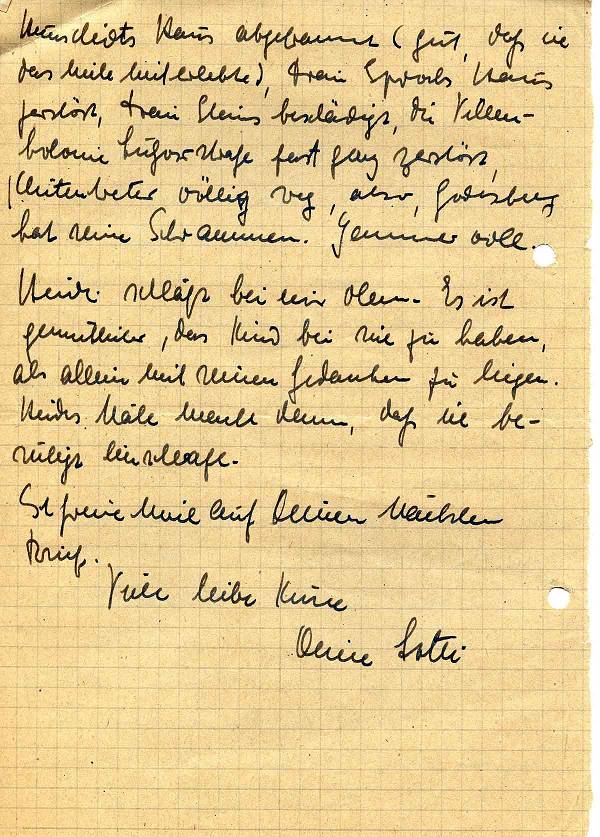 Haus abgebrannt (gut, daß sie
das nicht miterlebte), Frau Haus
zerstört, Frau Steins beschädigt, die Villen-
kolonie fast ganz zerstört,
völlig weg, also, Godesberg
hat seine Schrammen. Jammervoll.
Heidi schläft bei mir oben. Es ist
gemütlicher, das Kind bei mir zu haben,
als allein mit seinen Gedanken zu liegen.
Heidis Nähe macht dann, daß ich be-
ruhigt einschlafe.
Ich freue mich auf Deinen nächsten
Brief.
Viele liebe Küsse
Deine Lotti